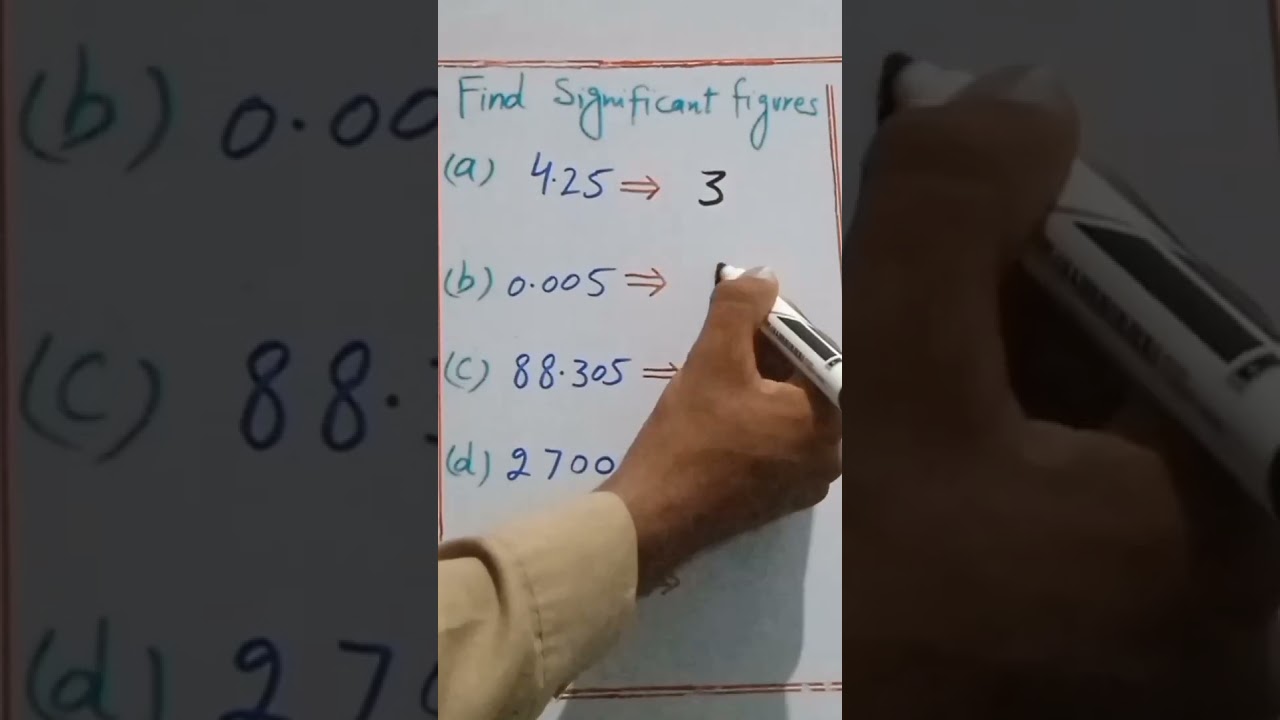 Find Significant figures
(a) 4.25 ⇒ 3
(b) 0.005 ⇒
(c) 88.305 ⇒
(d) 2700
(b) 0.00
(c) 88.
(d) 27